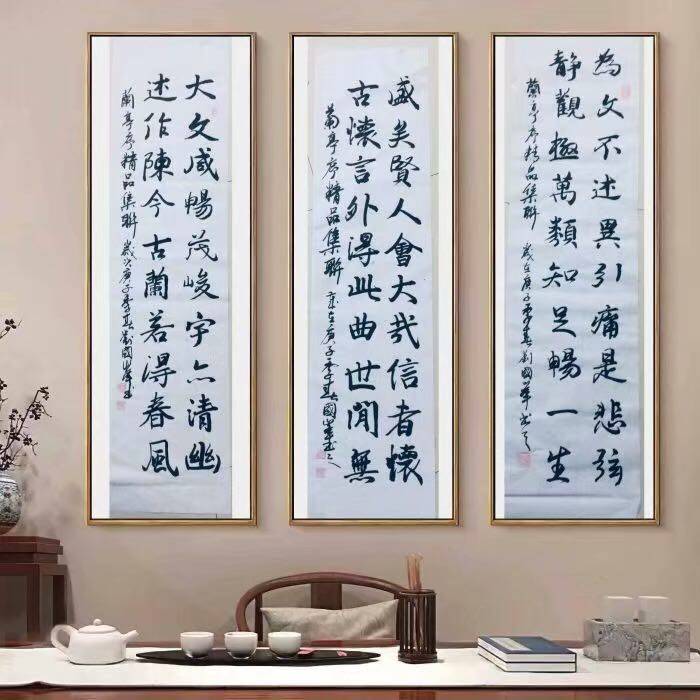 為文不述異引痛是悲弦
靜觀極萬類知足暢一生
蘭亭序精品集聯 歲在庚子季春劉國華書之
盛矣賢人會大哉信者懷
古懷言外得此曲世間無
蘭亭序精品集聯 歲在庚子季春國華書之
大文咸暢茂峻宇亦清幽
述作陳今古蘭若得春風
蘭亭序精品集聯 歲次庚子季春劉國華書